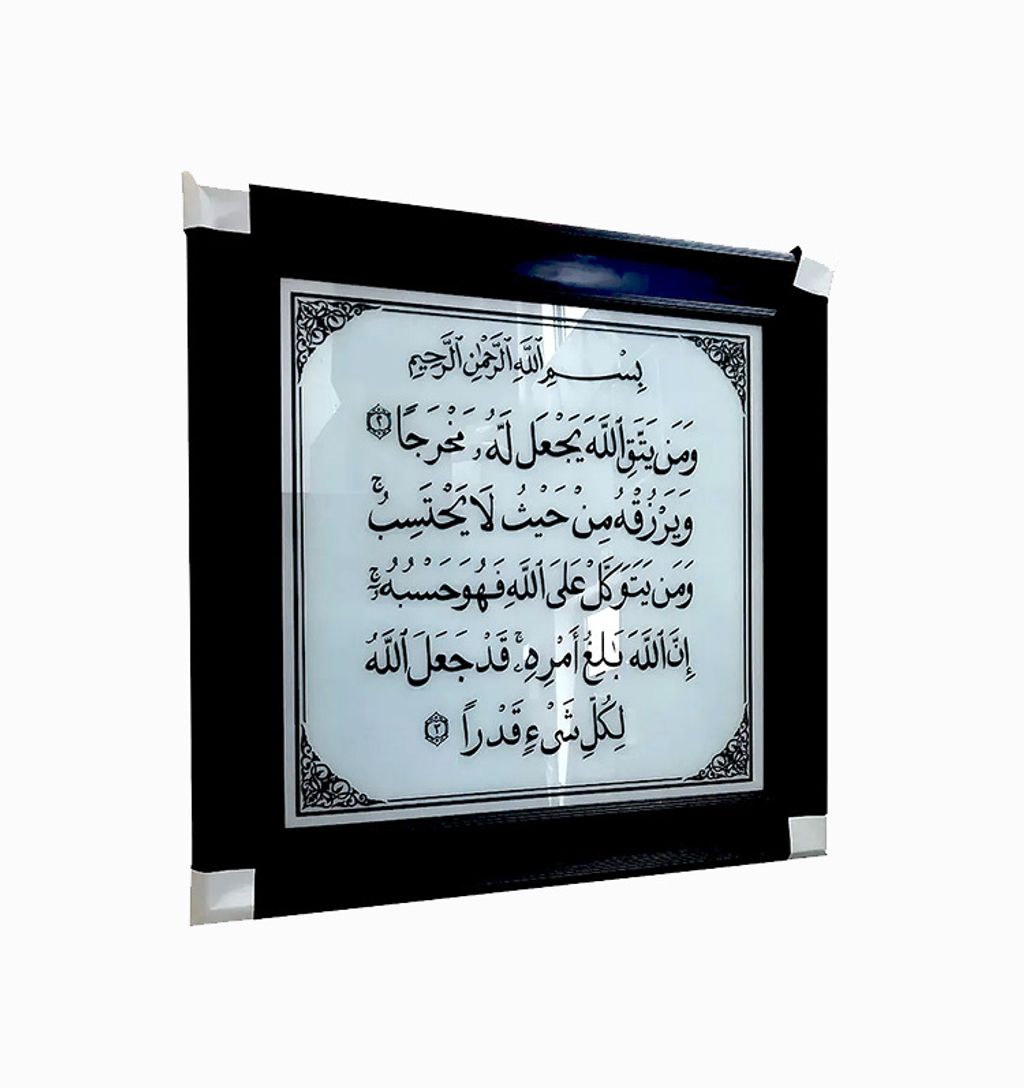 بِسْمِ ٱللَّهِ ٱلرَّحْمَٰنِ ٱلرَّحِيمِ
وَمَن يَتَّقِ ٱللَّهَ يَجْعَل لَّهُۥ مَخْرَجًا ٢
وَيَرْزُقْهُ مِنْ حَيْثُ لَا يَحْتَسِبُ ۚ
وَمَن يَتَوَكَّلْ عَلَى ٱللَّهِ فَهُوَ حَسْبُهُۥٓ ۚ
إِنَّ ٱللَّهَ بَٰلِغُ أَمْرِهِۦ ۚ قَدْ جَعَلَ ٱللَّهُ
لِكُلِّ شَىْءٍ قَدْرًا ٣